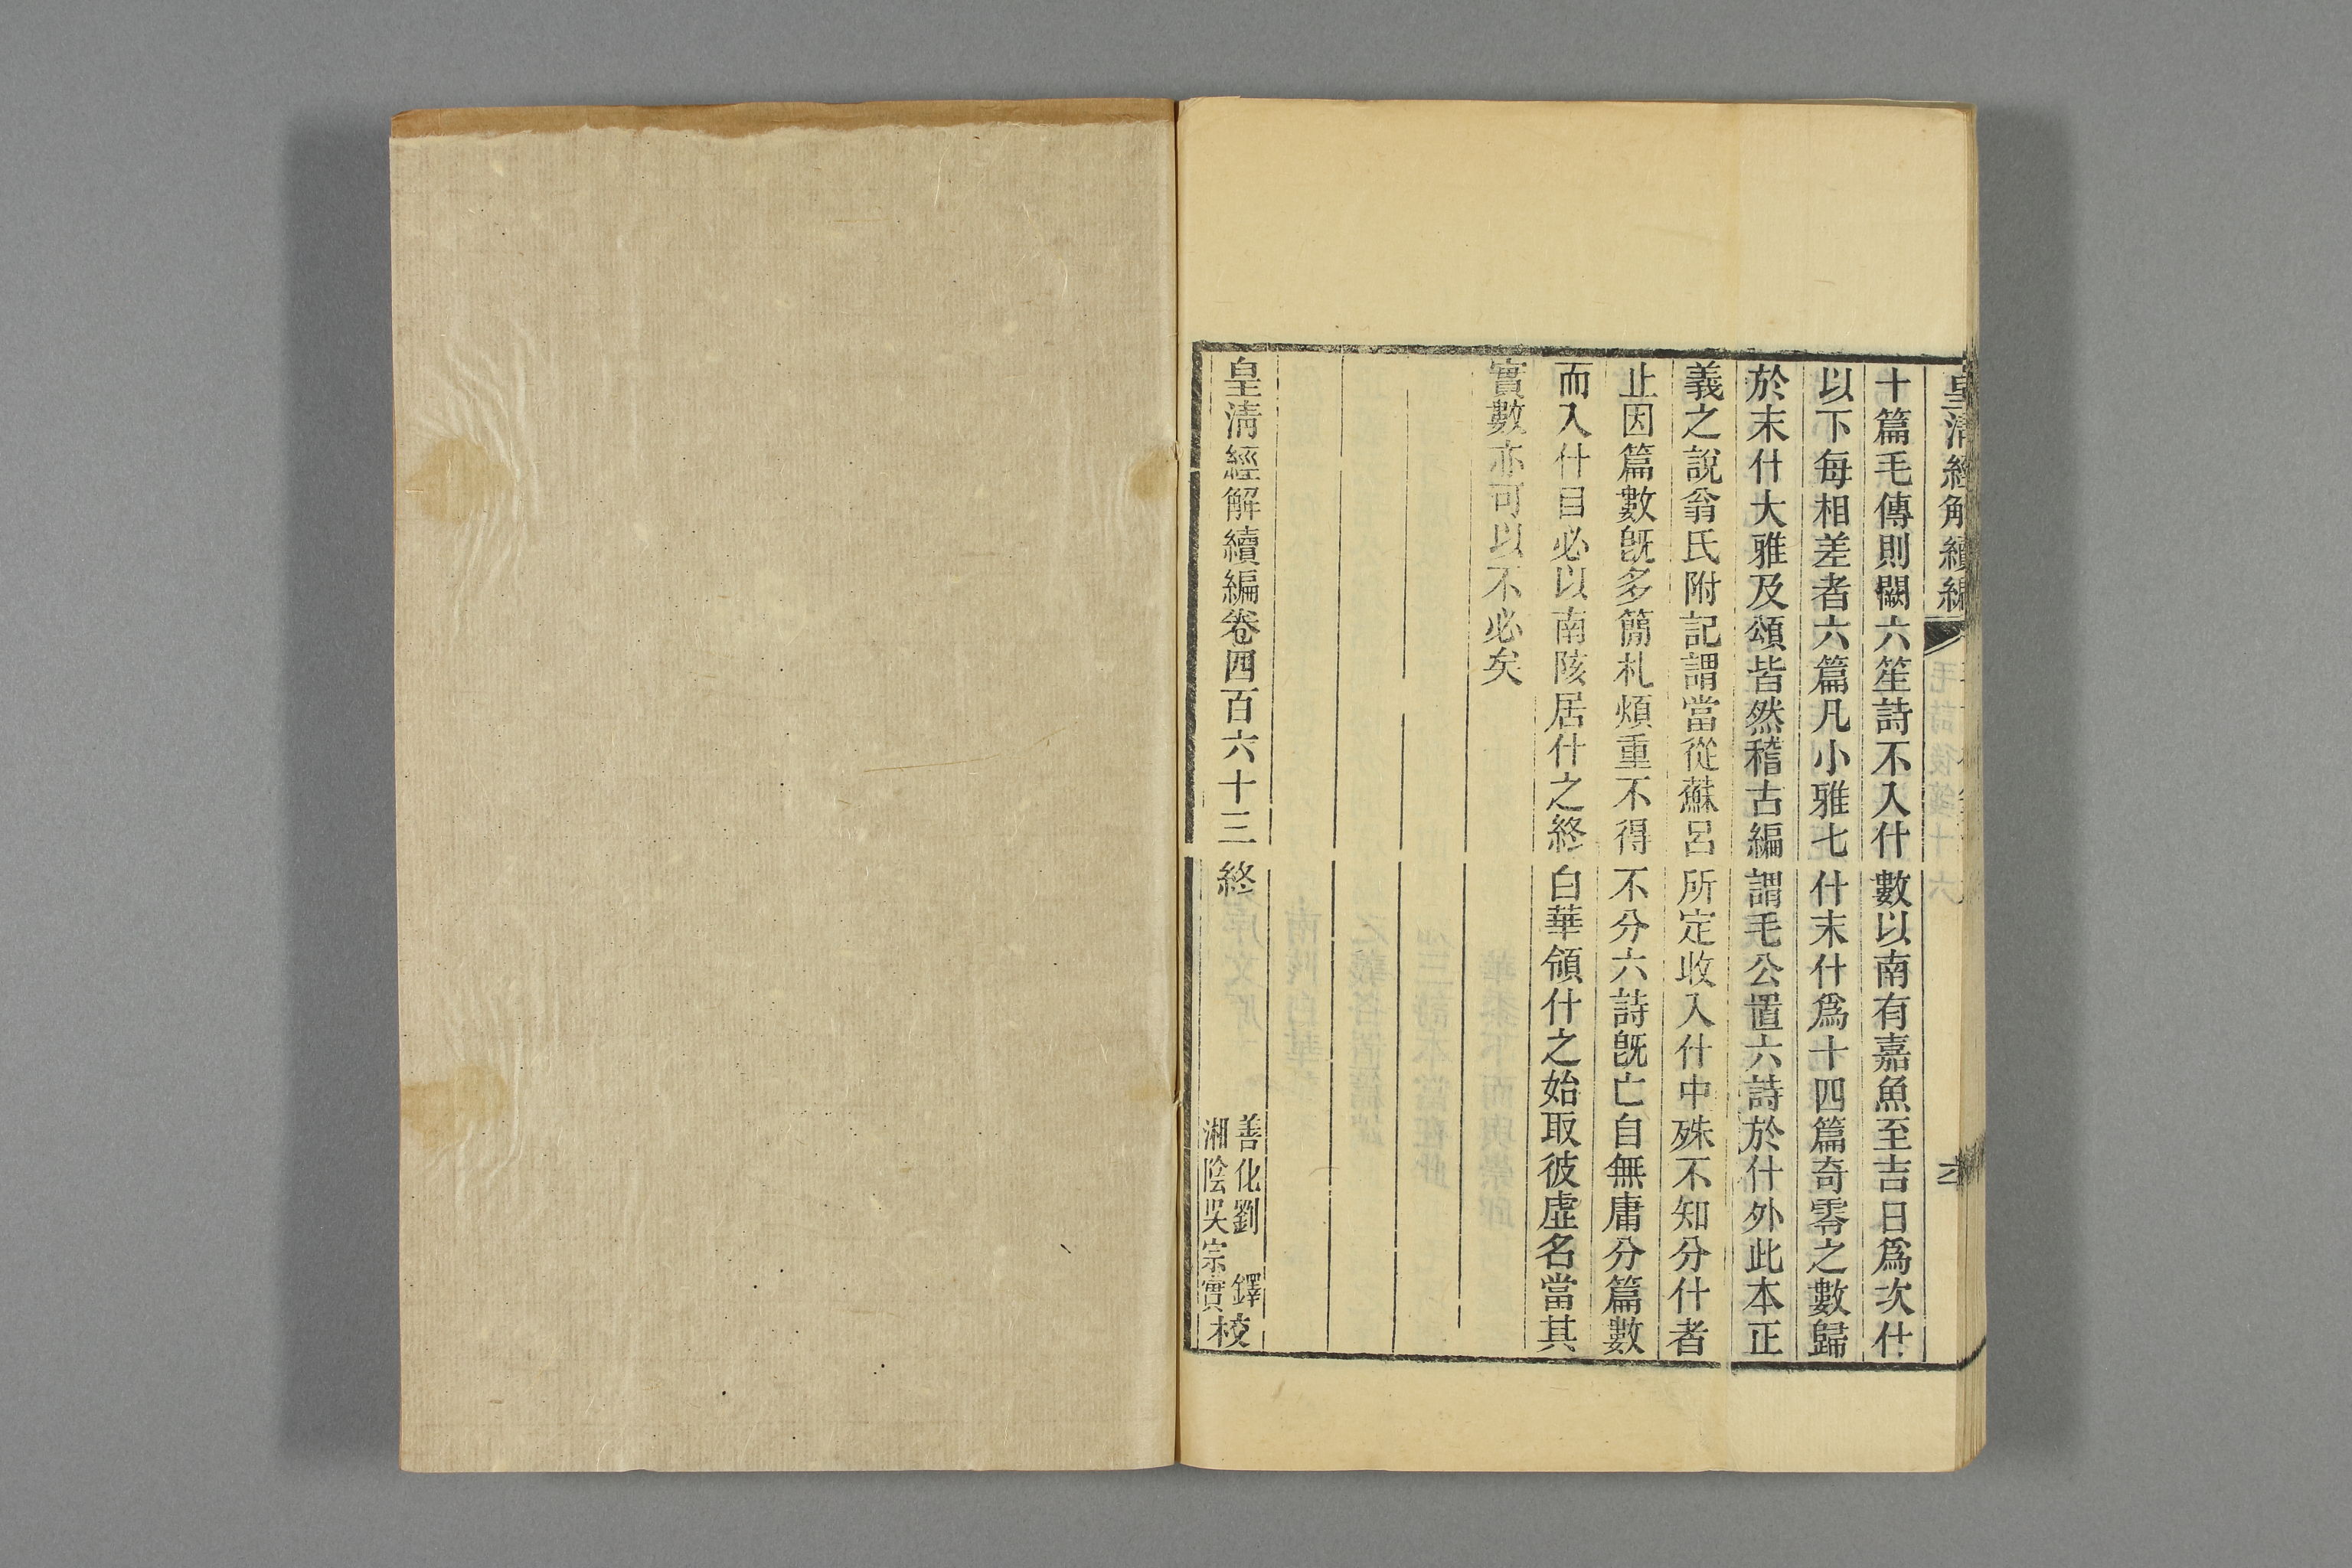 皇清經解續編
十篇毛傳則闕六笙詩不入什數以南有嘉魚至吉日爲次什
以下每相差者六篇凡小雅七什末什爲十四篇奇零之數歸
於末什大雅及頌皆然稽古編謂毛公置六詩於什外此本正
義之說翁氏附記謂當從蘇呂所定收入什中殊不知分什者
止因篇數旣多簡札煩重不得不分六詩旣亡自無庸分篇數
而入什目必以南陔居什之終白華領什之始取彼虛名當其
實數亦可以不必矣
皇清經解續編卷四百六十三終
善化劉鐸
湘陰吳宗實校